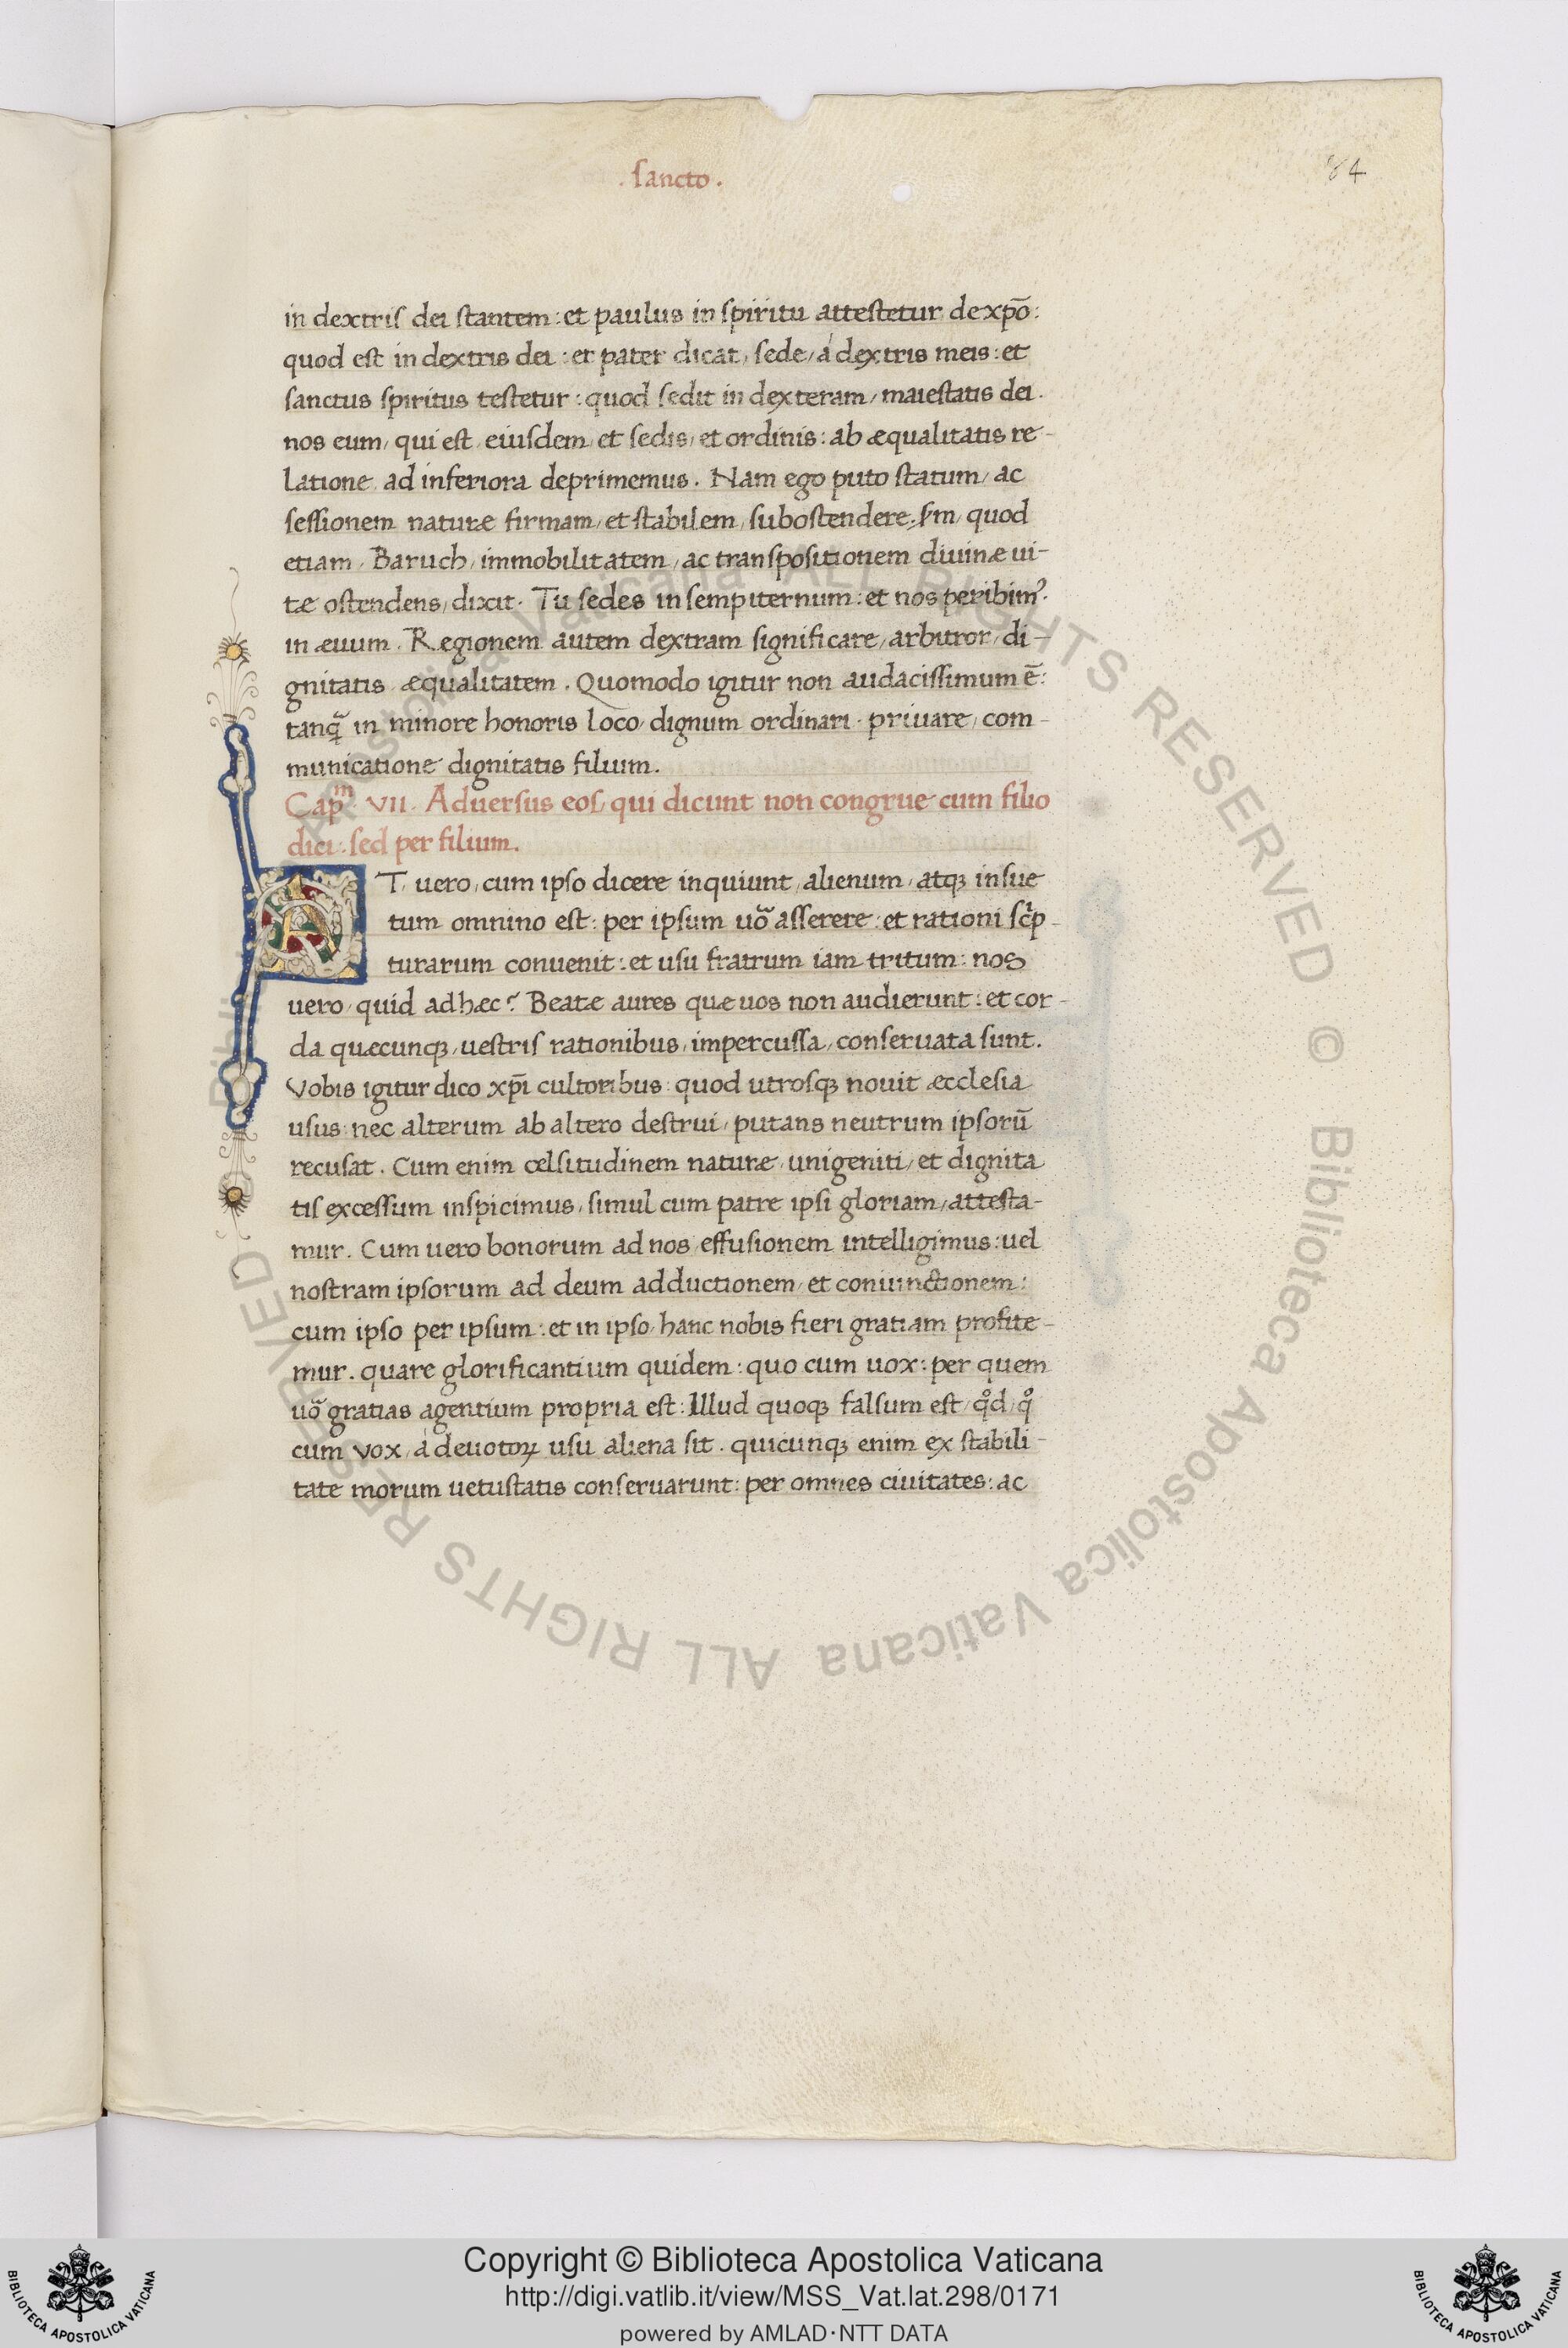 . sancto .
84
in dextris dei stantem : et paulus in spiritu attestetur de xp̄o :
quod est in dextris dei : et pater dicat, sede, à dextris meis : et
sanctus spiritus testetur : quod sedit in dexteram, maiestatis dei .
nos eum, qui est, eiusdem, et sedis, et ordinis : ab æqualitatis re-
latione, ad inferiora deprimemus . Nam ego puto statum, ac
sessionem naturæ firmam, et stabilem, subostendere, sm, quod
etiam, Baruch, immobilitatem, ac transpositionem diuinæ ui-
tæ ostendens, dixit . Tu sedes in sempiternum : et nos peribimꝰ.
in æuum . Regionem autem dextram significare, arbitror, di-
gnitatis æqualitatem . Quomodo igitur non audacissimum ē :
tanꝗ̃ in minore honoris loco, dignum ordinari . priuare, com-
municatione dignitatis filium .
Capᵐ. VII. Aduersus eos, qui dicunt non congrue cum filio
dici : sed per filium .
AT, uero, cum ipso dicere inquiunt, alienum, atqꝫ insue
tum omnino est : per ipsum uõ asserere : et rationi sc̓p-
turarum conuenit : et usu fratrum iam tritum : nos
uero, quid ad hæc ? Beatæ aures quæ uos non audierunt : et cor-
da quæcunqꝫ, uestris rationibus, impercussa, conseruata sunt .
Vobis igitur dico xp̄i cultoribus : quod utrosqꝫ nouit æcclesia
usus : nec alterum ab altero destrui, putans neutrum ipsorū
recusat . Cum enim celsitudinem naturæ, unigeniti, et dignita
tis excessum inspicimus, simul cum patre ipsi gloriam, attesta-
mur . Cum uero bonorum ad nos, effusionem intelligimus : uel
nostram ipsorum ad deum adductionem, et coniunctionem :
cum ipso per ipsum : et in ipso, hanc nobis fieri gratiam profite-
mur . quare glorificantium quidem : quo cum uox : per quem
uõ gratias agentium propria est : Illud quoqꝫ falsum est, qͦd, qͦ
cum vox, à deuotoꝝ usu aliena sit . quicunqꝫ enim ex stabili-
tate morum uetustatis conseruarunt : per omnes ciuitates : ac
Copyright © Biblioteca Apostolica Vaticana
http://digi.vatlib.it/view/MSS_Vat.lat.298/0171
powered by AMLAD·NTT DATA
BIBLIOTECA APOSTOLICA VATICANA
BIBLIOTECA APOSTOLICA VATICANA
© Biblioteca Apostolica Vaticana ALL RIGHTS RESERVED
Apostolica Vaticana ALL RIGHTS RESERVED